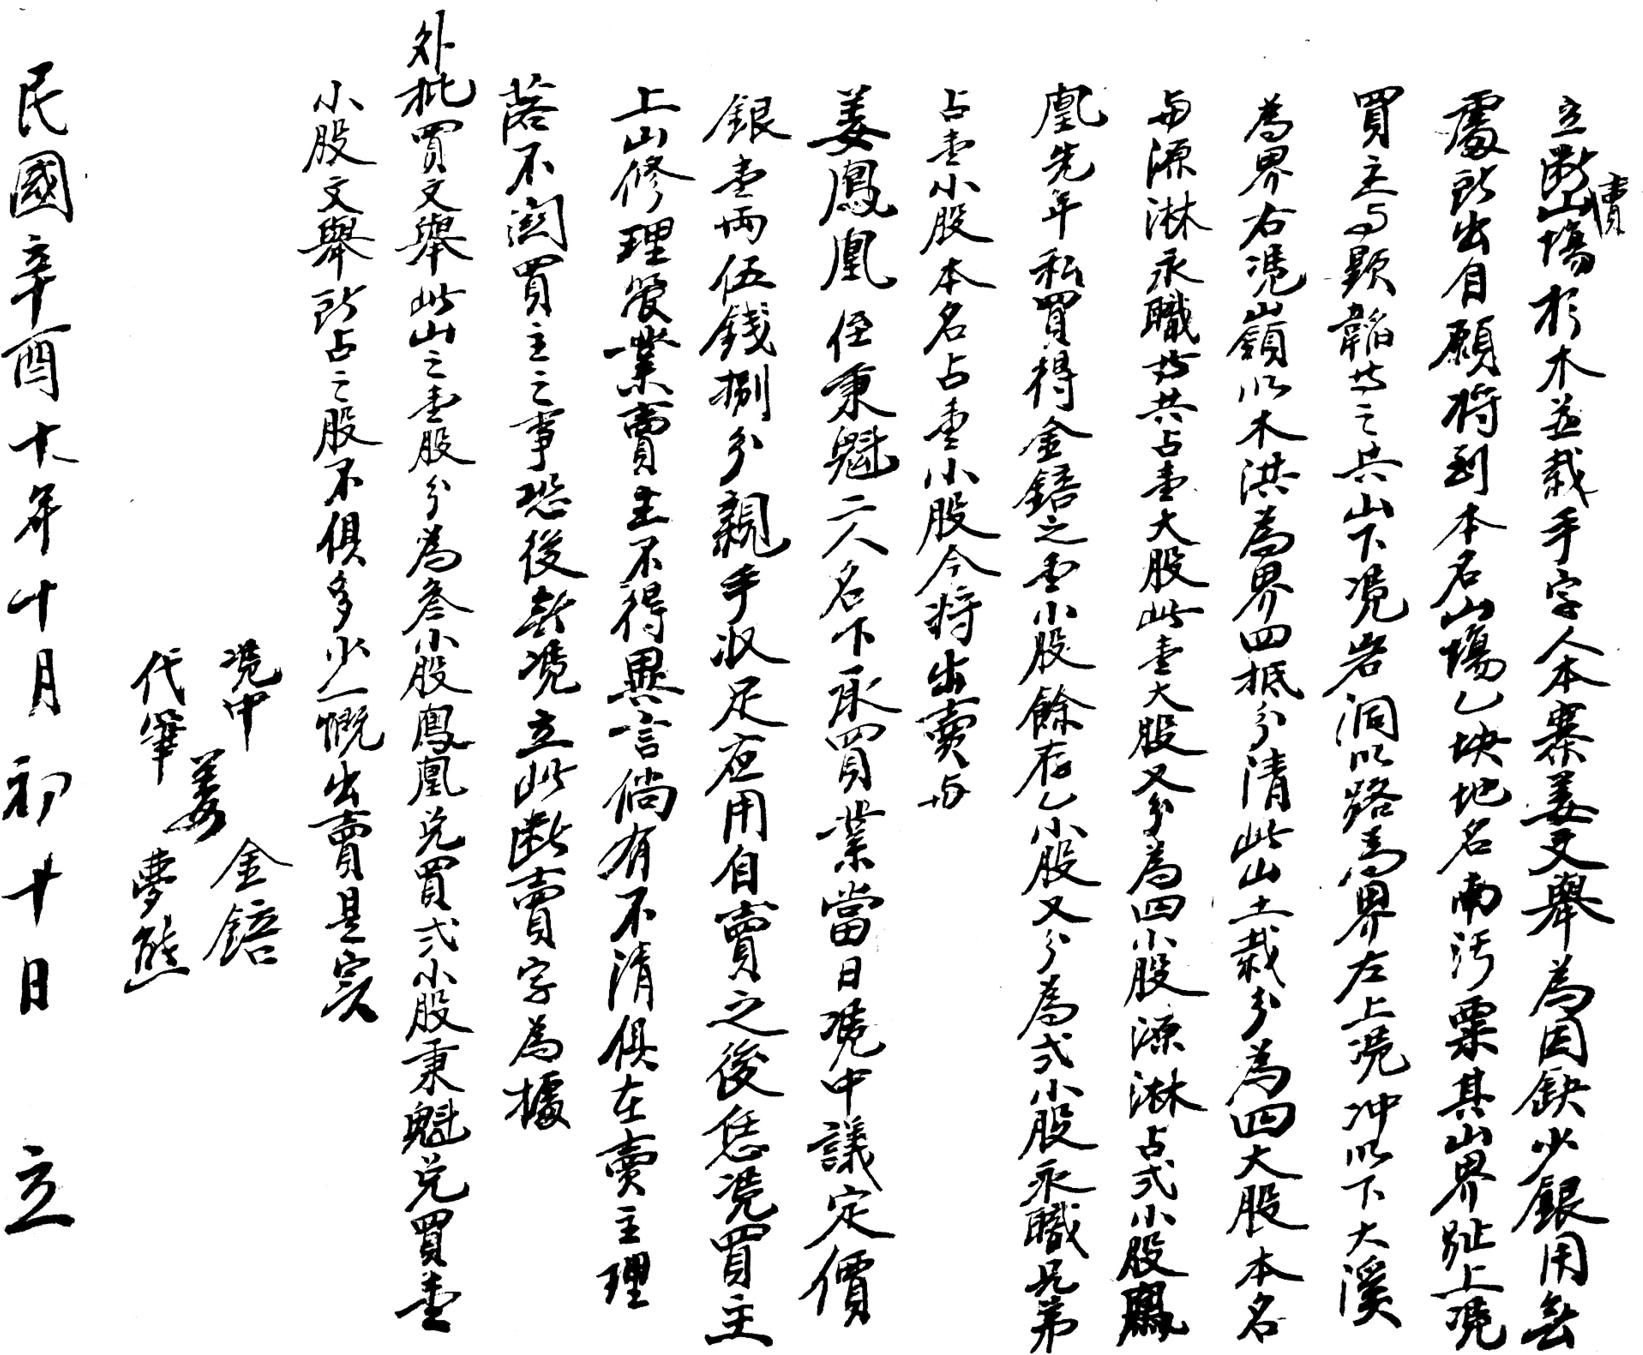 立斷賣山塲杉木並栽手字人本寨姜文舉為因缺少銀用無
處所出自願將到本名山塲乙塊地名南汚粟其山界趾上凴
買主与顯韜等之共山下凴岩洞以路為界左上凴冲以下大溪
為界右凴嶺以木洪為界四抵分清此山土栽分為四大股本名
与源淋永職等共占壹大股此壹大股又分為四小股源淋占弍小股鳳
凰先年私買得金錇之壹小股餘存乙小股又分為弍小股永職兄弟
占壹小股本名占壹小股今將出賣与
姜鳳凰侄秉魁二人名下承買業當日凴中議定價
銀壹两伍錢捌分親手收足应用自賣之後恁凴買主
上山修理管業賣主不得異言倘有不清俱在賣主理
落不関買主之事恐後無凴立此斷賣字為據
外批買文舉此山之壹股分為叁小股鳳凰兑買弍小股秉魁兑買壹
小股文舉所占之股不俱多少一慨出賣是实
凴中 金錇
姜
代筆 夢熊
民國辛酉十年十月初十日 立